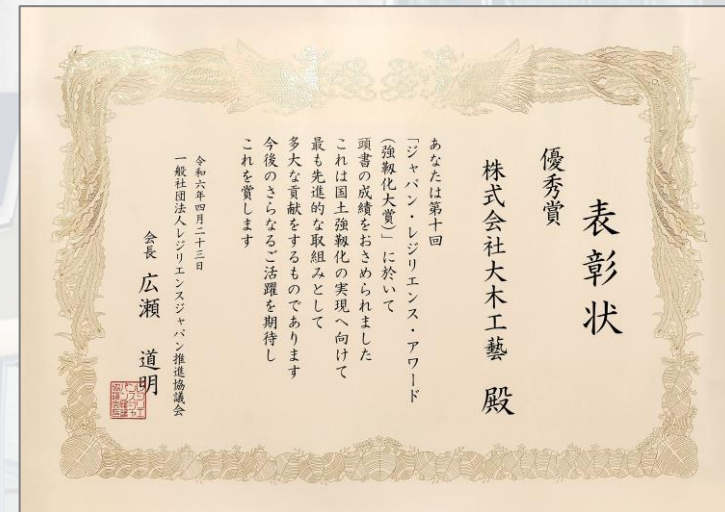 表彰状
優秀賞
株式会社大木工藝 殿
あなたは第十回
「ジャパン・レジリエンス・アワード
(強靱化大賞)」に於いて
頭書の成績をおさめられました
これは国土強靱化の実現へ向けて
最も先進的な取組みとして
多大な貢献をするものであります
今後のさらなるご活躍を期待し
これを賞します
令和六年四月二十三日
一般社団法人レジリエンスジャパン推進協議会
会長 広瀬 道明